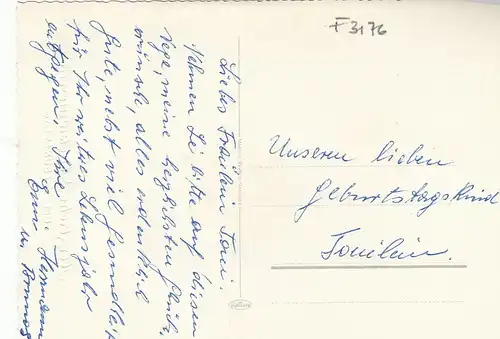 F 3176
Liebes Fräulein Toni.
Nehmen Sie bitte auf diesem
Wege, meine herzlichsten Glück-
wünsche, alles erdenklich
Gute, nebst viel Gesundheit
für Ihr weiteres Lebensjahr
entgegen. Ihre
Hermann
Unseren lieben
Geburtstagskind
Tonilein.